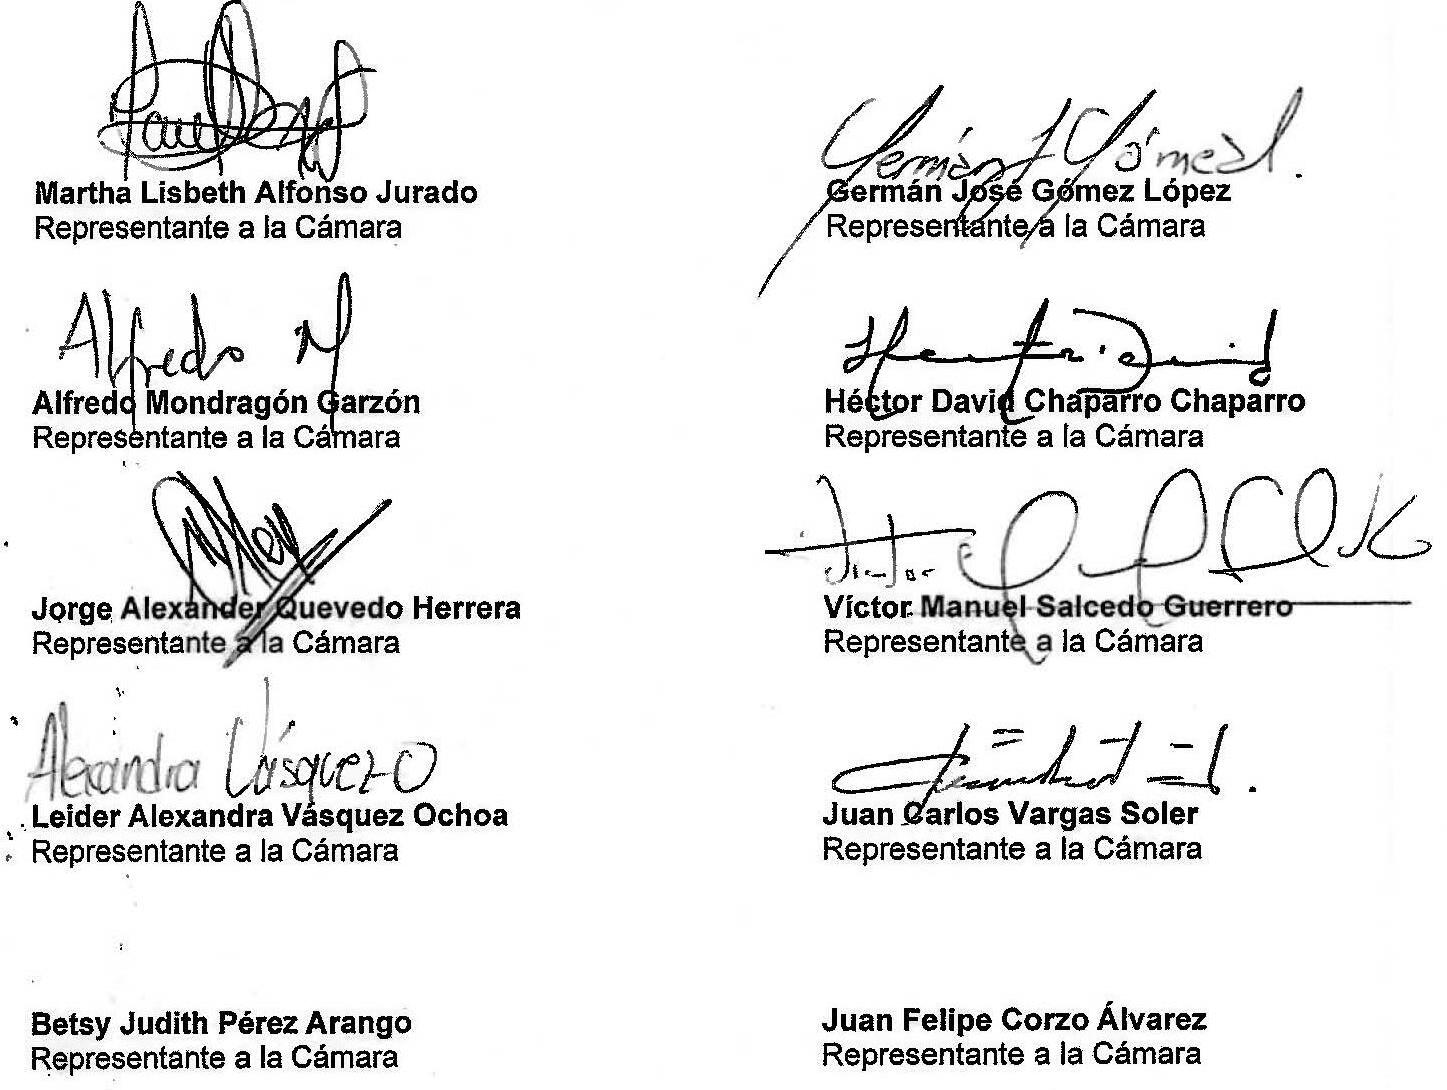 Martha Lisbeth Alfonso Jurado
Representante a la Cámara
Germán J Gómez L.
Germán José Gómez López
Representante a la Cámara
Alfredo M
Alfredo Mondragón Garzón
Representante a la Cámara
Héctor David Chaparro Chaparro
Representante a la Cámara
Jorge Alexander Quevedo Herrera
Representante a la Cámara
Víctor Manuel Salcedo Guerrero
Representante a la Cámara
Alexandra Vásquez O
Leider Alexandra Vásquez Ochoa
Representante a la Cámara
Juan Carlos Vargas Soler
Representante a la Cámara
Betsy Judith Pérez Arango
Representante a la Cámara
Juan Felipe Corzo Álvarez
Representante a la Cámara